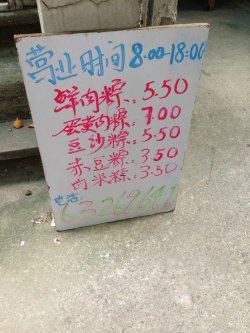 营业时间8:00-18:00
鲜肉粽:5.50
蛋黄肉粽:7.00
豆沙粽:5.50
赤豆粽:3.50
肉米粽:3.50
电话: